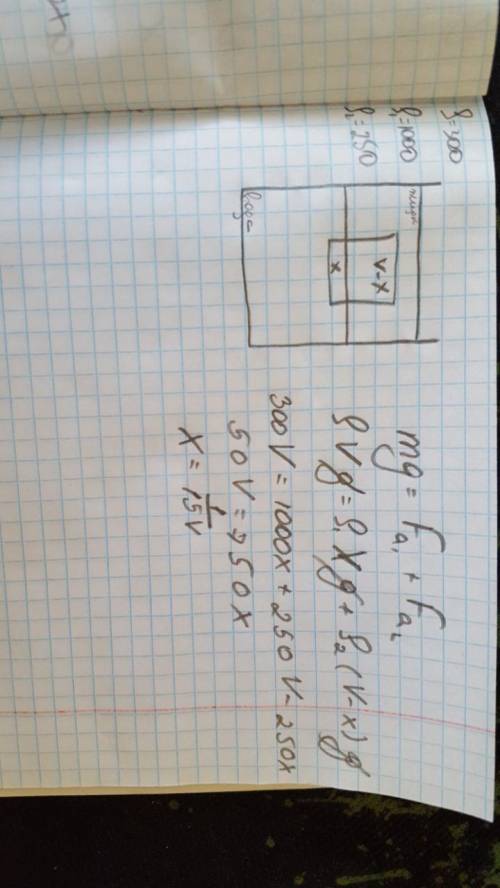 ρ = 300
ρ₁ = 1000
ρ₂ = 250
V-x
x
вода
mg = Fa₁ + Fa₂
ρVg = ρ₁Xg + ρ₂(V-x)g
300V = 1000x + 250V - 250x
50V = 750x
X = 1/15V